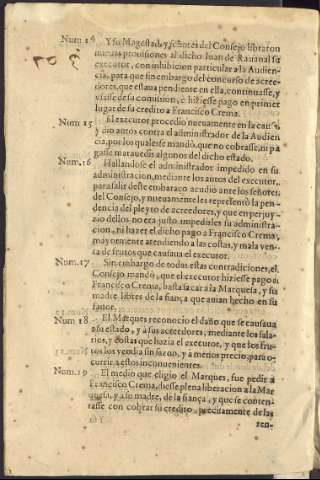 Num 14 Y su Magestad, y señores del Consejo libraron
nueuas prouisiones al dicho Iuan de Rastanal su
executor, con inhibicion particular a la Audien-
cia, para que sin embargo del concurso de acree-
dores, que estaua pendiente en ella, continuasse, y
vsasse de su comision, e hiziesse pago en primer
lugar de su credito a Francisco Crema.
Num 15 El executor procedió nueuamente en la causa,
y dio autos contra el administrador de la Audien-
cia, por los quales se mandó, que no cobrasse, ni pa
gasse marauedis algunos del dicho estado.
Num.16 Hallandose el administrador impedido en su
administracion, mediante los autos del executor,
para salir deste embaraço acudio ante los señores
del Consejo, y nueuamente les representò la pen-
dencia del pleyto de acreedores, y que en perjuy-
zio dellos no era justo impedirles su administra-
cion, ni hazer el dicho pago a Francisco Crema,
mayormente atendiendo a las costas, y mala ven-
ta de frutos que causaua el executor.
Num.17 Sin embargo de todas estas contradiciones, el
Consejo mandó, que el executor hiziesse pago a
Francisco Crema, hasta sacar a la Marquesa, y su
madre libres de la fiança que auian hecho en su
fauor.
Num 18 El Marques reconocio el daño que se causaua
a su estado, y a sus acreedores, mediante los sala-
rios, y costas que hazia el executor, y que los fru-
tos los vendia sin sazon, y a menos precio, para o-
currir a estos inconuenientes.
Num.19 El medio que eligio el Marques, fue pedir a
Francisco Crema, diesse plena liberacion a la Mar
quesa, y a su madre, de la fiança, y que se conten
tasse con cobrar su credito, precisamente de las
ren-